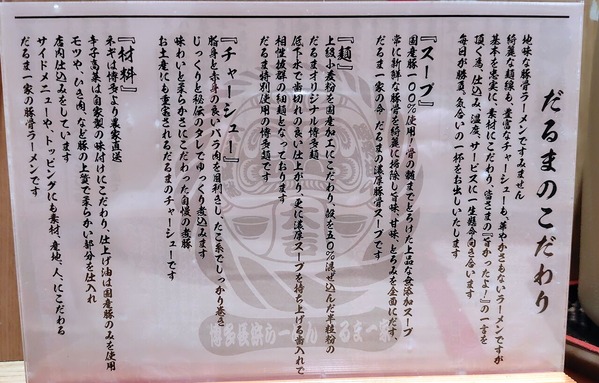 だるまのこだわり
地味な豚骨ラーメンですみません
綺麗な麺線も、豊富なチャーシューも、華やかさもないラーメンですが
基本を忠実に、素材にこだわり、皆さまの『旨かったよ！』の一言を
頂く為、仕込み、温度、サービスに一生懸命向き合います
毎日が勝負、気合いの一杯をお出しいたします
『スープ』
国産豚100%使用！骨の髄までとろけた上品な無添加スープ
常に新鮮な豚骨を綺麗に掃除し旨味、甘味、とろみを全面にだす、
だるま一家の命 だるまの濃厚豚骨スープです
『麺』
上級小麦粉を国産加工にこだわり、殻を五0%混ぜ込んだ半粒粉の
だるまオリジナル博多麺
低下水で歯切れの良い仕上がり、更に濃厚スープを持ち上げる歯入れで
相性抜群の細麺となっております
だるま特別使用の博多麺です
『チャーシュー』
脂身と赤身の良いバラ肉を目利きし、たこ糸でしっかり巻き
じっくりと秘伝のタレでゆっくり煮込みます
味わいと柔らかさにこだわった自慢の煮豚
お土産にも重宝されるだるまのチャーシューです
『材料』
ネギは博多より農家直送
辛子高菜は自家製の味付けにこだわり、仕上げ油は国産豚のみを使用
モツや、ひき肉、など豚の上質で柔らかい部分を仕入れ
店内仕込みをしています
サイドメニューや、トッピングにも素材、産地、人、にこだわる
だるま一家の豚骨ラーメンです
博多長浜らーめん だるま一家